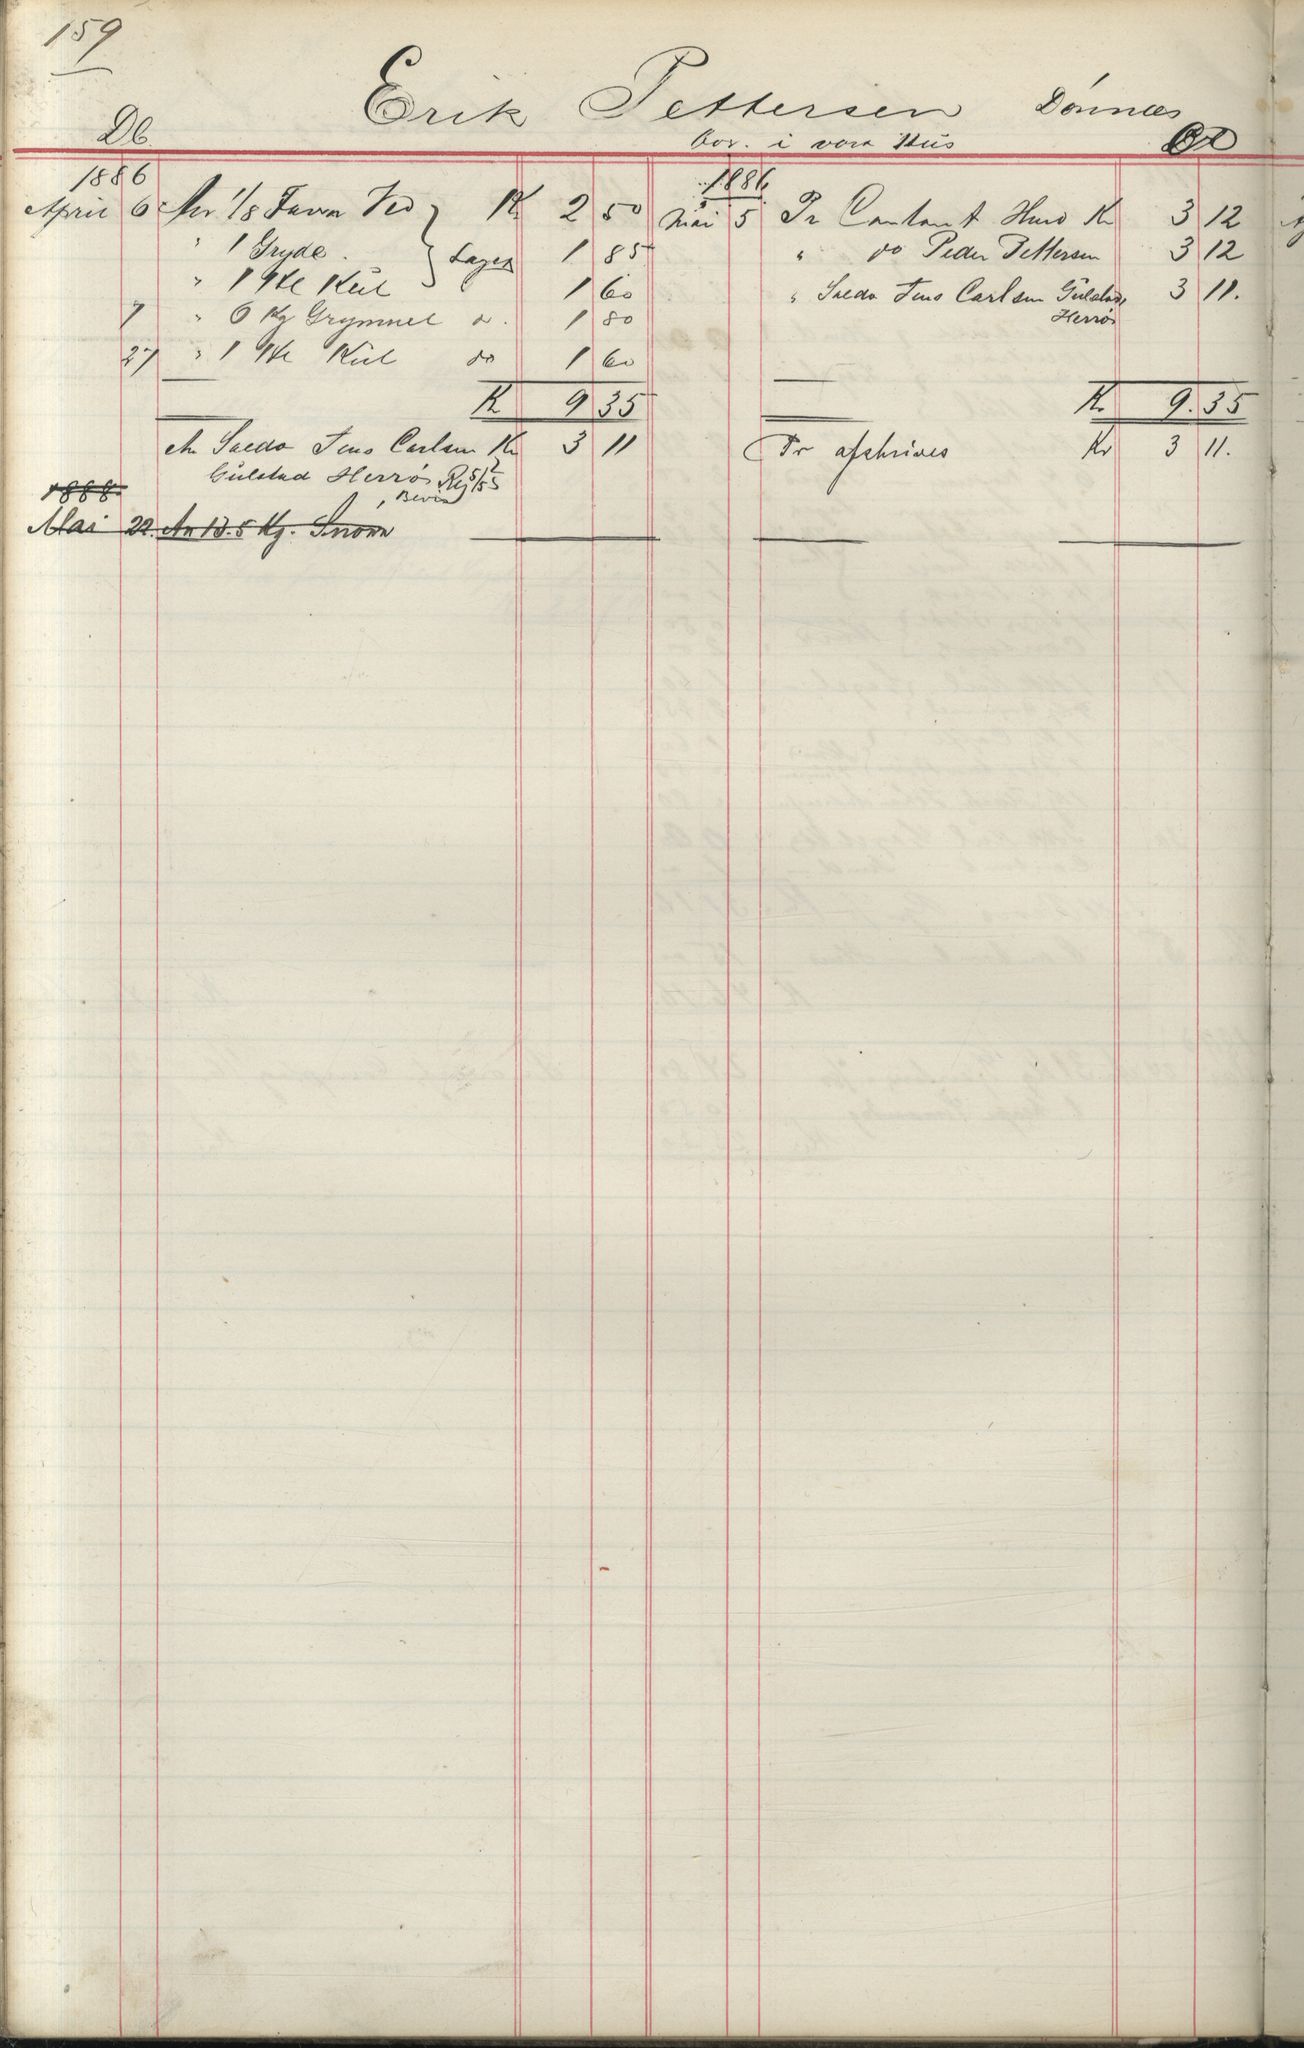 159
Erik Pettersen Dönnæs
Db bor. i vora Hus Cr
1886
April 6 An 1/8 Favn Ved K 2 50
" 1 Gryde. Lager 1 85
" 1 Htl Kul 1 60
7 " 6 Kg Grynmel do. 1 80
27 " 1 Htl Kul do 1 60
K 9 35
An Saldo Jens Carlsen Kr 3 11
Gulstad Herrø Reg
1888
Mai 22. An 13.5 Kg.
1886
Mai 5 Pr Contant Huus Kr 3 12
" do Peder Pettersen 3 12
" Saldo Jens Carlsen Gulstad, 3 11.
Herrø
Kr 9.35
Pr afskrives Kr 3 11.